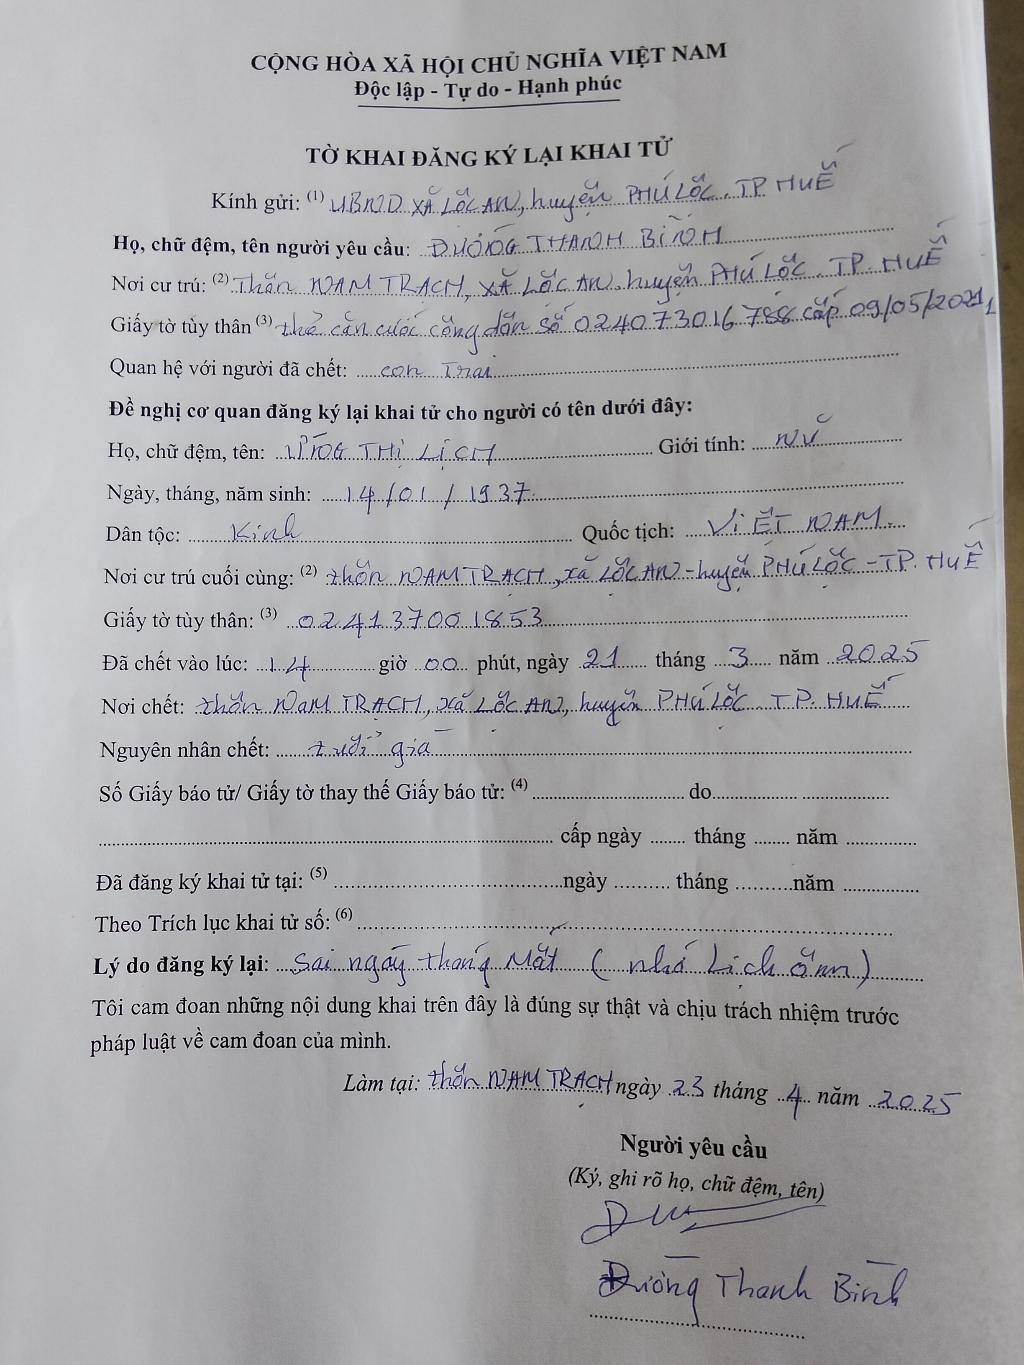 CỘNG HÒA XÃ HỘI CHỦ NGHĨA VIỆT NAM
Độc lập - Tự do - Hạnh phúc
TỜ KHAI ĐĂNG KÝ LẠI KHAI TỬ
Kính gửi: (1) UBND XÃ LỘC AN, huyện PHÚ LỘC. TP HUẾ
Họ, chữ đệm, tên người yêu cầu: DƯƠNG THANH BÌNH
Nơi cư trú: (2) Thôn NAM TRẠCH, XÃ LỘC AN. huyện PHÚ LỘC. TP. HUẾ
Giấy tờ tùy thân (3) thẻ căn cước công dân số 024073016788 cấp 09/05/2021
Quan hệ với người đã chết: con Trai
Đề nghị cơ quan đăng ký lại khai tử cho người có tên dưới đây:
Họ, chữ đệm, tên: THỊ LỊCH Giới tính: NỮ
Ngày, tháng, năm sinh: 14/01/1937.
Dân tộc: Kinh Quốc tịch: VIỆT NAM.
Nơi cư trú cuối cùng: (2) thôn NAM TRẠCH, xã LỘC AN - huyện PHÚ LỘC - TP. HUẾ
Giấy tờ tùy thân: (3) 024137001853
Đã chết vào lúc: 14 giờ 00 phút, ngày 21 tháng 3 năm 2025
Nơi chết: thôn NAM TRẠCH, xã LỘC AN, huyện PHÚ LỘC. TP. HUẾ
Nguyên nhân chết: tuổi già
Số Giấy báo tử/ Giấy tờ thay thế Giấy báo tử: (4) do
cấp ngày tháng năm
Đã đăng ký khai tử tại: (5) ngày tháng năm
Theo Trích lục khai tử số: (6)
Lý do đăng ký lại: Sai ngày tháng Mất (nhớ Lịch âm)
Tôi cam đoan những nội dung khai trên đây là đúng sự thật và chịu trách nhiệm trước
pháp luật về cam đoan của mình.
Làm tại: thôn NAM TRẠCH ngày 23 tháng 4 năm 2025
Người yêu cầu
(Ký, ghi rõ họ, chữ đệm, tên)
Dương Thanh Bình